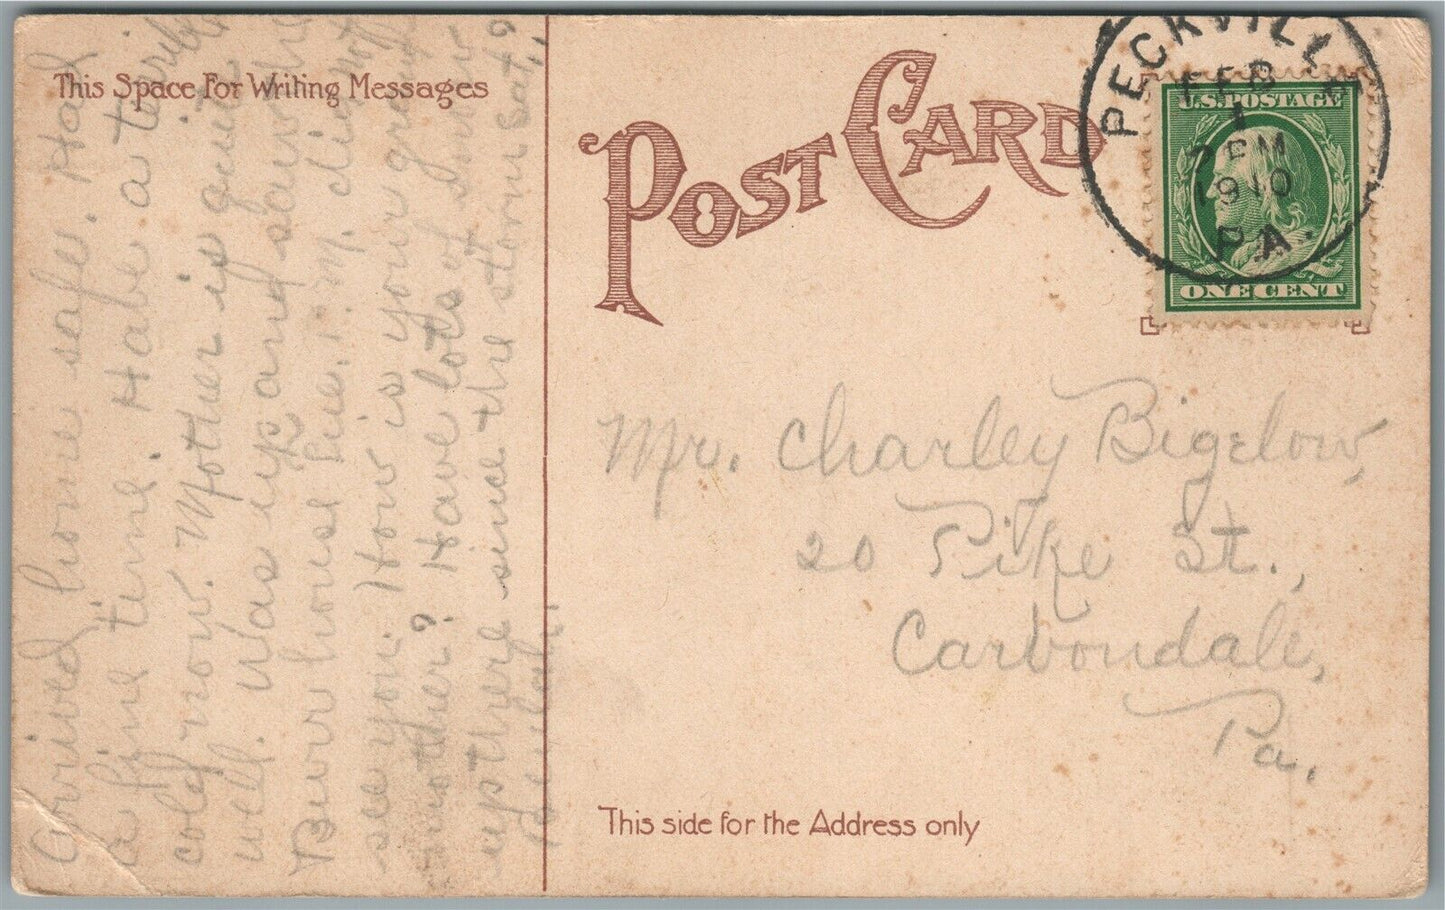 This Space For Writing Messages
POST CARD
PECKVILLE
FEB
1
7 PM
1910
PA.
U.S. POSTAGE
ONE CENT
Arrived home safe. Had
a fine time. Have a terrible
cold now. Mother is quite
well. Was up and saw the
Burr house Sue. P.M. did not
see you. How is your grand
mother? Have lots of snow
up there since the storm Sat?
Mr. Charley Bigelow,
20 Pike St.,
Carbondale,
Pa.
This side for the Address only